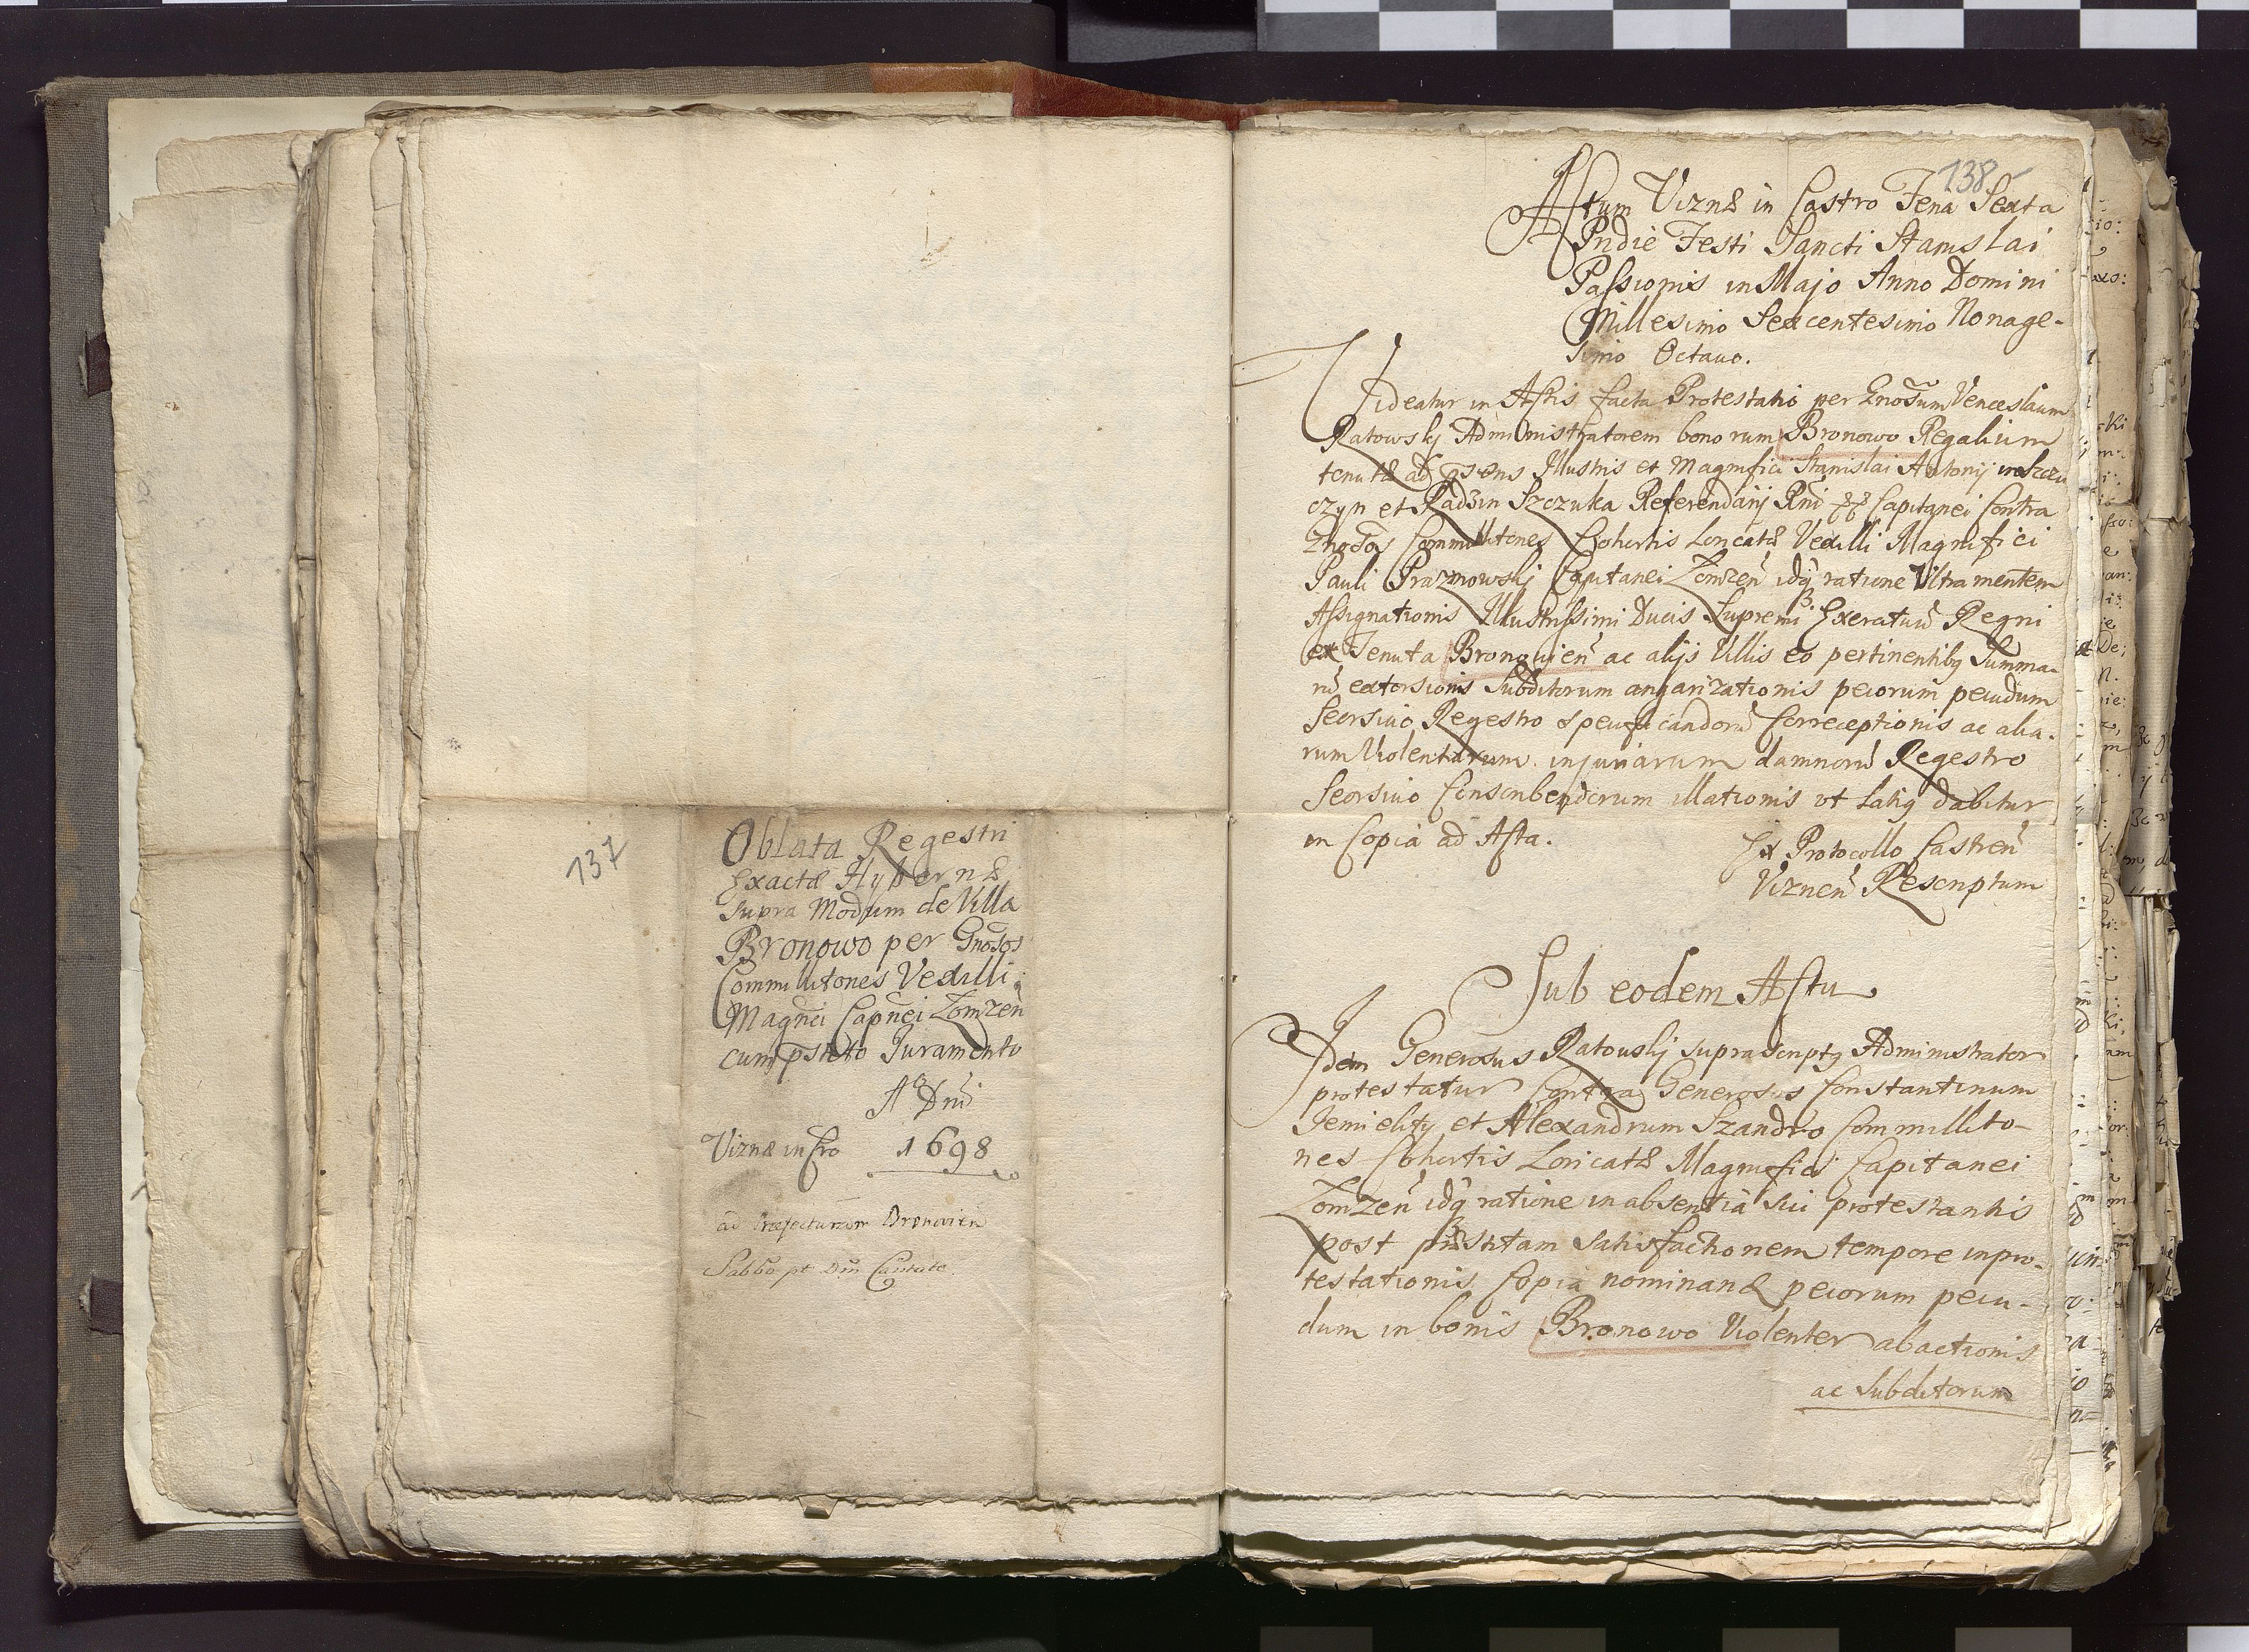 137
Oblata Regestri
Exactæ Hybernæ
supra Modum de Villa
Bronowo per Gnosos
Commilitones Vexilli
Magnci Capnei Łomzen
cum pstito Juramento
Ao Dni
Viznæ in Cro 1698
ad Præfecturam Bronovien
Sabbo pt Dm Cantate
138
Actum Viznæ in Castro Feria Sexta
Pridie Festi Sancti Stanislai
Passionis in Majo Anno Domini
Millesimo Sexcentesimo Nonage-
simo Octauo.
Videatur in Actis facta Protestatio per Gnosum Venceslaum
Ratowskj Administratorem bonorum Bronowo Regalium
tenutæ ad psens Illustris et Magnifici Stanislai Antonij in Szczu
czyn et Radzin Szczuka Referendarij Rni Capitanei Contra
Gnosos Commilitones Cohortis Loricatæ Vexilli Magnifici
Pauli Prazmowskj Capitanei Łomzen idq ratione Vltra mentem
Assignationis Illustrissimi Ducis Supremi Exercituu Regni
ex Tenuta Bronovien ac alijs Villis eo pertinentibq Summa-
ru extorsionis Subditorum angarizationis pecorum pecudum
Seorsiuo Regestro specificandoru Correceptionis ac alia-
rum Violentarum injuriarum damnoru Regestro
Seorsiuo Conscribendorum illationis vt latiq dabitur
in Copia ad Acta.
Ex Protocollo Castren
Viznen Rescriptum
Sub eodem Actu
Idem Generosus Ratouskj suprascriptq Administrator
protestatur Contra Generosos Constantinum
Jemielity et Alexandrum Szandro Commillito-
nes Cohortis Loricatæ Magnifici Capitanei
Łomzen idq ratione in absentia sui protestantis
post præstitam satisfactionem tempore in pro-
testationis Copia nominan pecorum pecu-
dum in bonis Bronowo Violenter abactionis
ac Subditorum